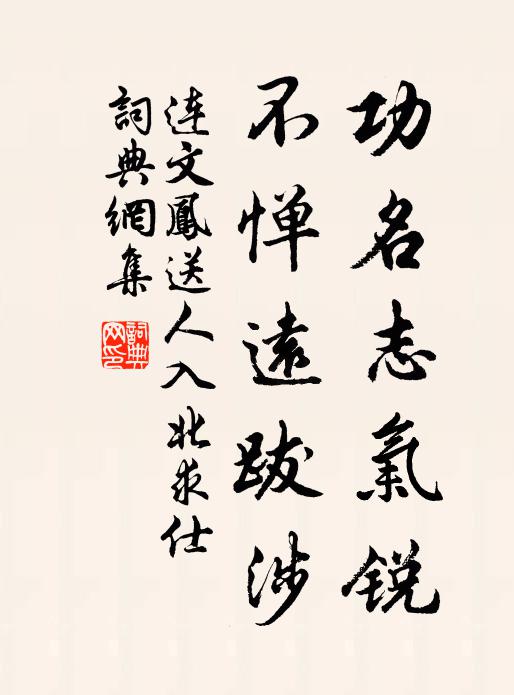 功名志氣銳
不惮遠跋涉
连文鳳送人入北求仕
詞典網集
詞典
网印